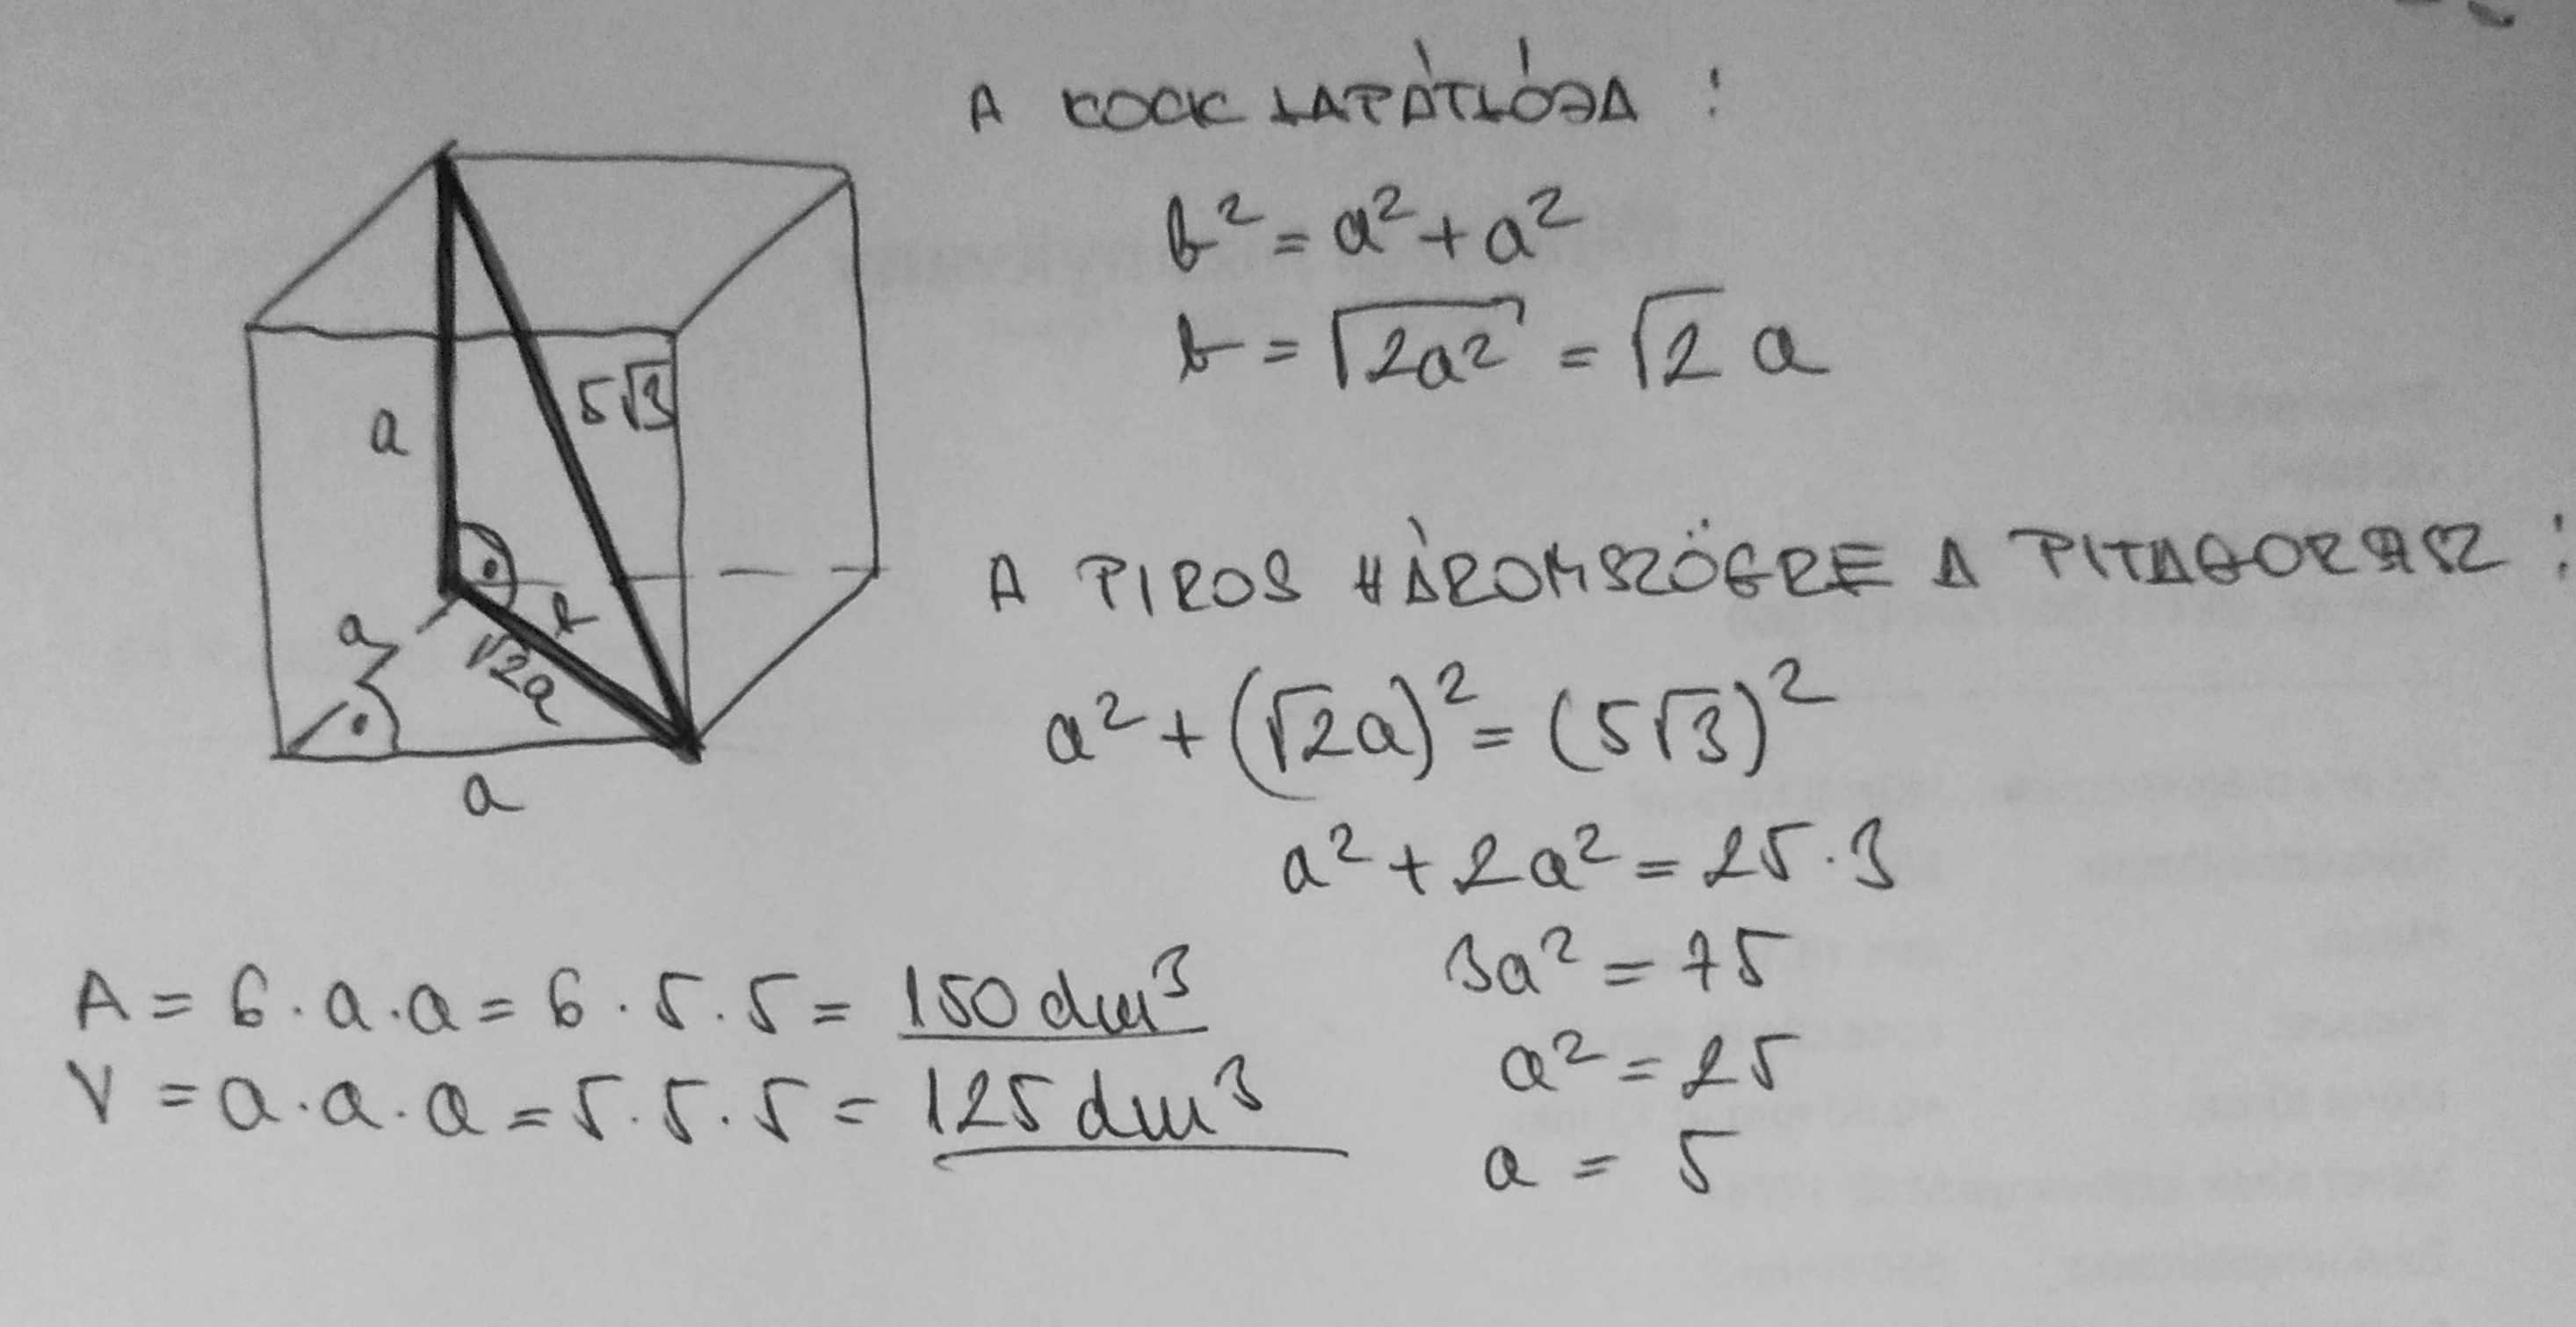 A KOCK LAPÁTLÓJA :
b² = a² + a²
b = √2a² = √2 a
5√3
a
b
a
√2a
a
A PIROS HÁROMSZÖGRE A PITAGORASZ :
a² + (√2a)² = (5√3)²
a² + 2a² = 25 · 3
3a² = 75
a² = 25
a = 5
A = 6 · a · a = 6 · 5 · 5 = 150 dm³
V = a · a · a = 5 · 5 · 5 = 125 dm³